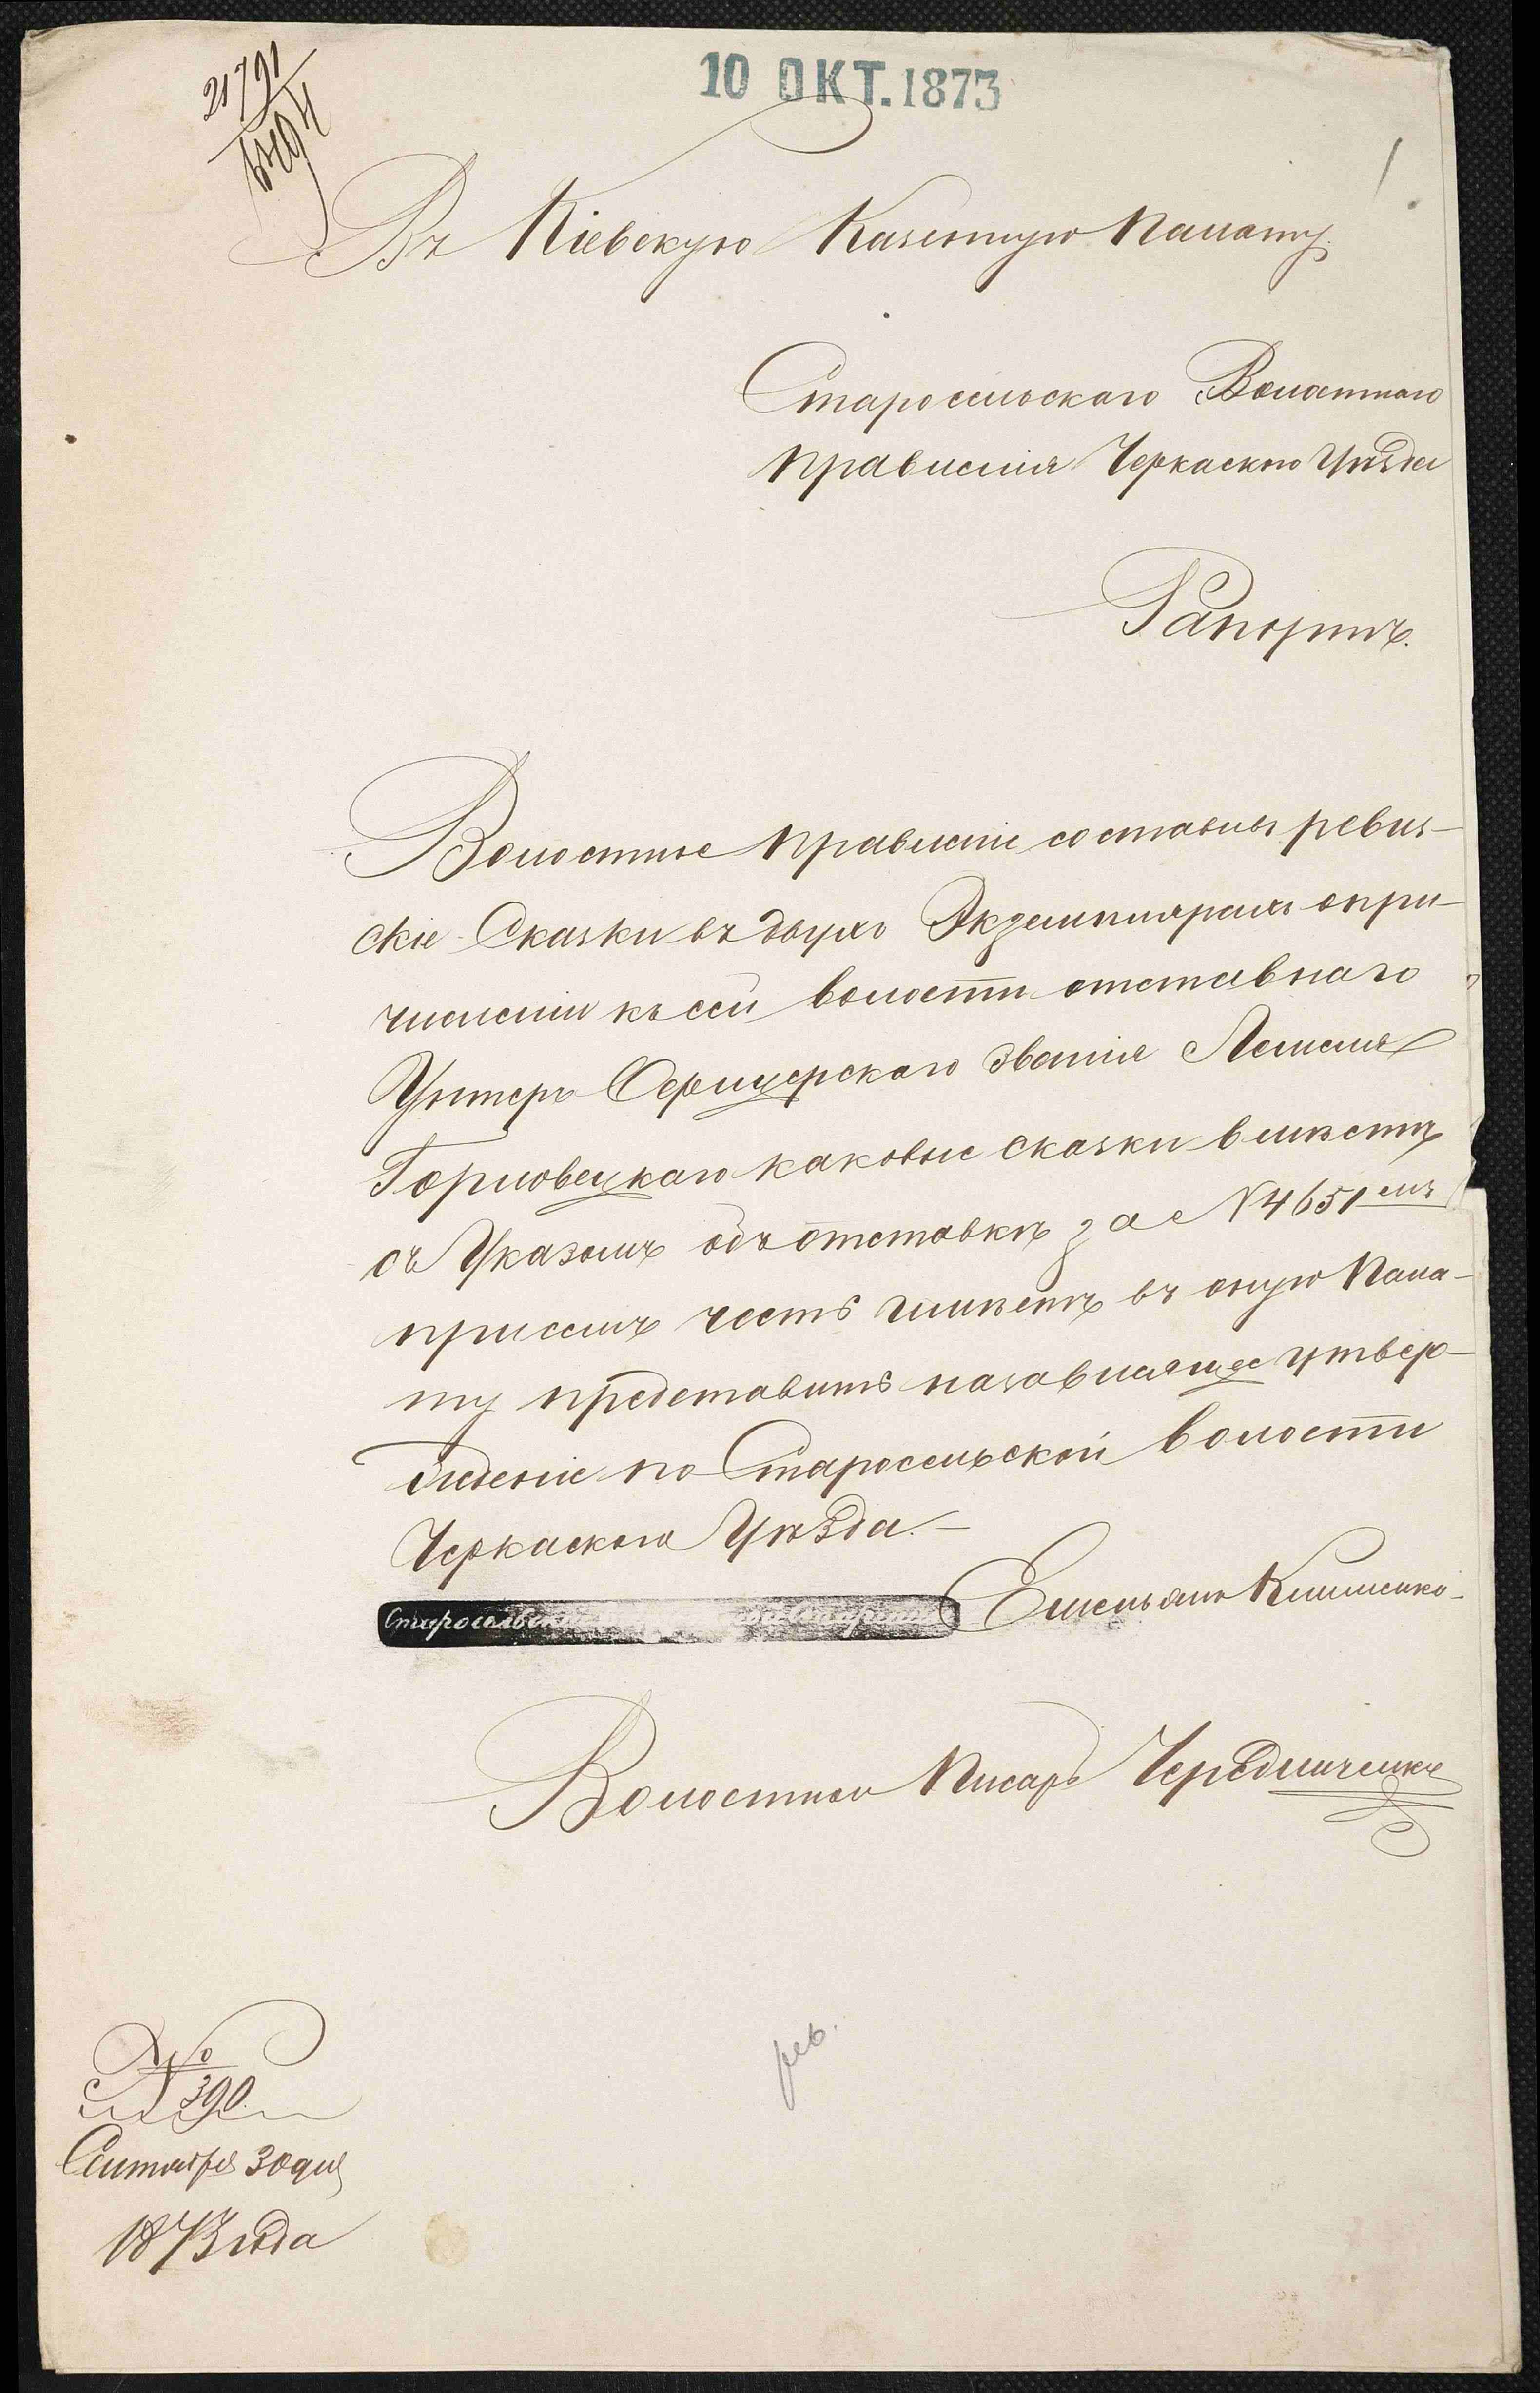 21791
10 ОКТ. 1873
1
Въ Кіевскую Казенную Палату.
Старосельскаго Волостнаго
Правленія Черкаскаго Уѣзда
Рапортъ.
Волостное Правленіе составивъ ревиз-
скіе Сказки въ двухъ Экземплярахъ опри-
численіи къ сей волости отставнаго
Унтеръ Офицерскаго званія
каковые сказки вмѣстѣ
съ Указомъ объ отставкѣ за № 4651 емъ
при семъ честь имѣетъ въ оную Пала-
ту представить
ждение по Старосельской волости
Черкаскаго Уѣзда.—
Старосельскій Старшина Емельянъ Клименко
Волостной Писарь Чередниченко
№ 390.
Сентября 30 дня
1873 года
рев.